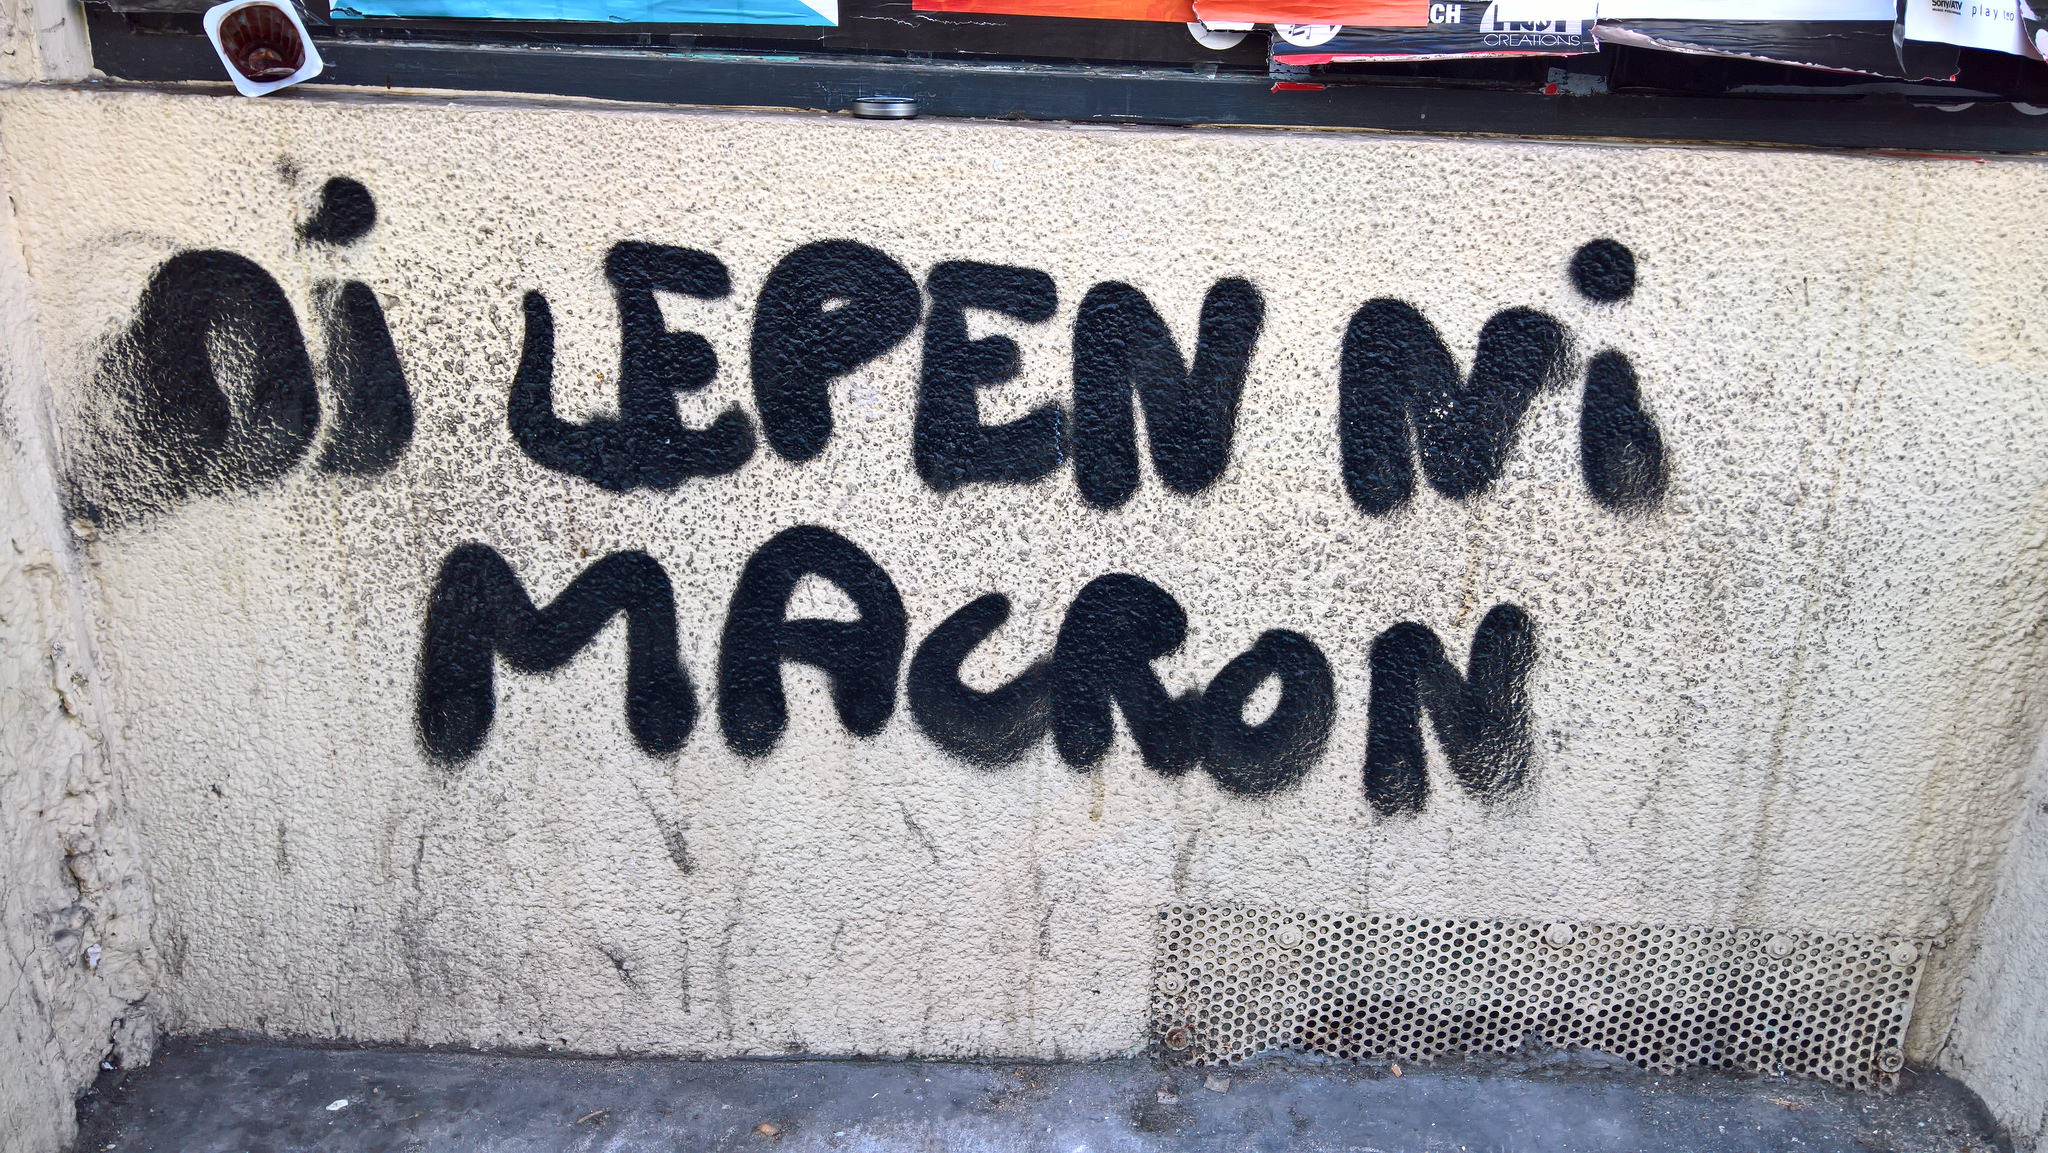 CH
CREATIONS
Sony/ATV
Ni LEPEN Ni
MACRON